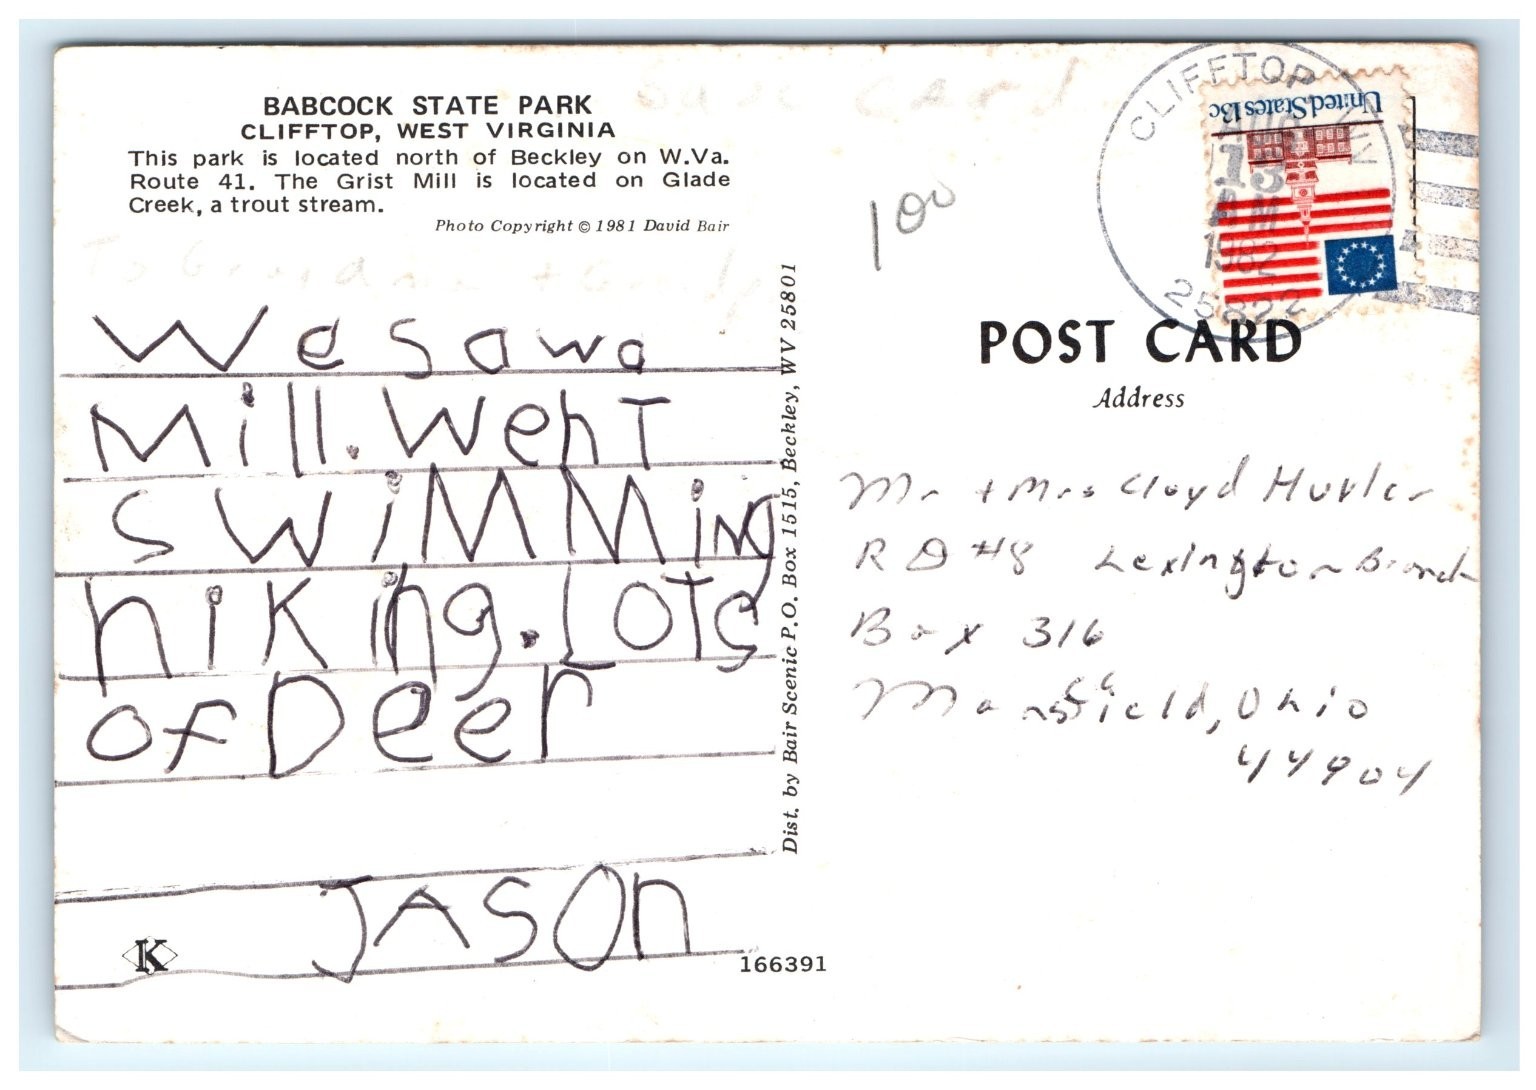 BABCOCK STATE PARK
CLIFFTOP, WEST VIRGINIA
This park is located north of Beckley on W.Va.
Route 41. The Grist Mill is located on Glade
Creek, a trout stream.
Photo Copyright © 1981 David Bair
Save Card
To Grandma +
We saw a
Mill. Went
SWiMMing
hiking. Lots
of Deer
JASOn
K
166391
Dist. by Bair Scenic P.O. Box 1515, Beckley, WV 25801
100
CLIFFTOP WV
AUG
13
PM
1982
25822
United States 13c
POST CARD
Address
Mr + Mrs Cloyd
RD #8 Lexington Branch
Box 316
Mansfield, Ohio
44904